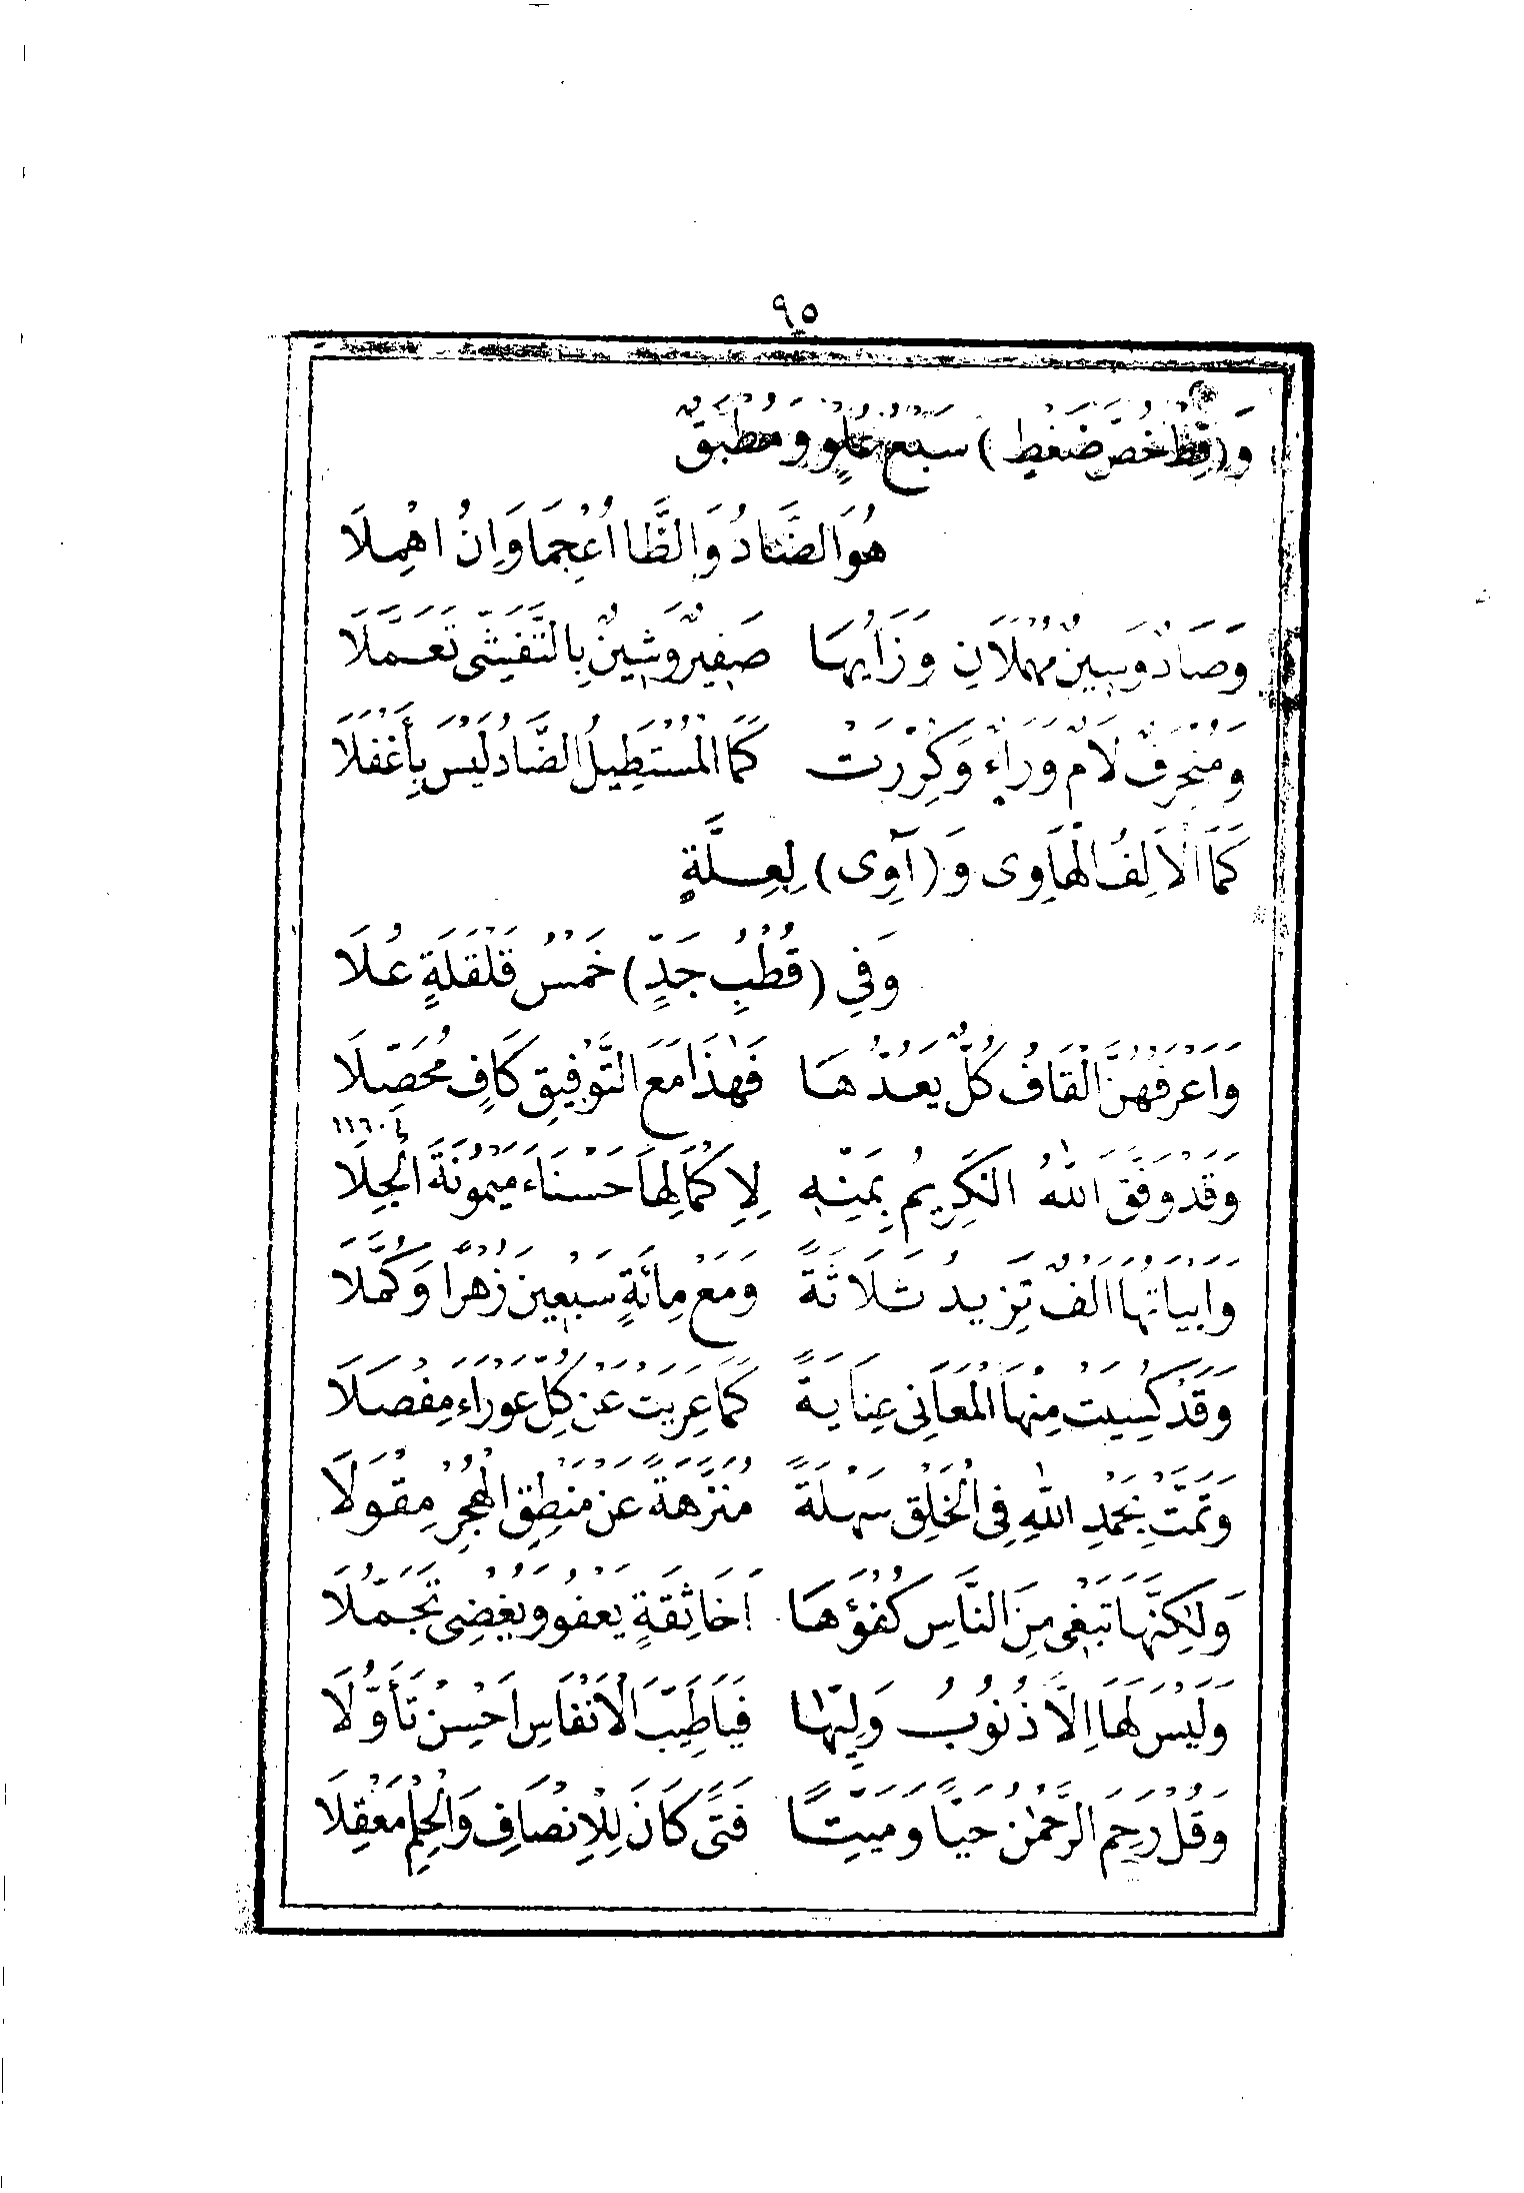 ٩٥
وَ(قِظْ خُصَّ ضَغْطٍ) سَبْعُ عُلْوٍ وَمُطْبَقٌ
هُوَ الضَّادُ وَالظَّا اُعْجِمَا وَاِنُ اهْمِلَا
وَصَادٌ وَسِينٌ مُهْمَلَانِ وَزَايُهَا صَفِيرٌ وَشِينٌ بِالتَّفَشِّى تَعَمَّلَا
وَمُنْحَرِفٌ لَامٌ وَرَاءٌ وَكُرِّرَتْ كَمَا الْمُسْتَطِيلُ الضَّادُ لَيْسَ بِأَغْفَلَا
كَمَا الْاَلِفُ الْهَاوِى وَ(آوِى) لِعِلَّةٍ
وَفِي (قُطْبِ جَدٍّ) خَمْسُ قَلْقَلَةٍ عُلَا
وَاَعْرَفُهُنَّ الْقَافُ كُلٌّ يَعُدُّهَا فَهٰذَا مَعَ التَّوْفِيقِ كَافٍ مُحَصِّلَا
١١٦٠
وَقَدْ وَفَّقَ اللّٰهُ الْكَرِيمُ بِمَنِّهِ لِاِكْمَالِهَا حَسْنَاءَ مَيْمُونَةَ الْجِلَا
وَاَبْيَاتُهَا اَلْفٌ تَزِيدُ ثَلَاثَةً وَمَعْ مِائَةٍ سَبْعِينَ زُهْرًا وَكُمَّلَا
وَقَدْ كُسِيَتْ مِنْهَا الْمَعَانِى عِنَايَةً كَمَا عَرِيَتْ عَنْ كُلِّ عَوْرَاءَ مِفْصَلَا
وَتَمَّتْ بِحَمْدِ اللّٰهِ فِى الْخَلْقِ سَهْلَةً مُنَزَّهَةً عَنْ مَنْطِقِ الْهُجْرِ مِقْوَلَا
وَلٰكِنَّهَا تَبْغِى مِنَ النَّاسِ كُفْؤَهَا اَخَاثِقَةٍ يَعْفُو وَيُغْضِى تَجَمُّلَا
وَلَيْسَ لَهَا اِلَّا ذُنُوبُ وَلِيِّهَا فَيَا طَيِّبَ الْاَنْفَاسِ اَحْسِنْ تَأَوُّلَا
وَقُلْ رَحِمَ الرَّحْمٰنُ حَيًّا وَمَيِّتًا فَتًى كَانَ لِلْاِنْصَافِ وَالْحِلْمِ مَعْقِلَا